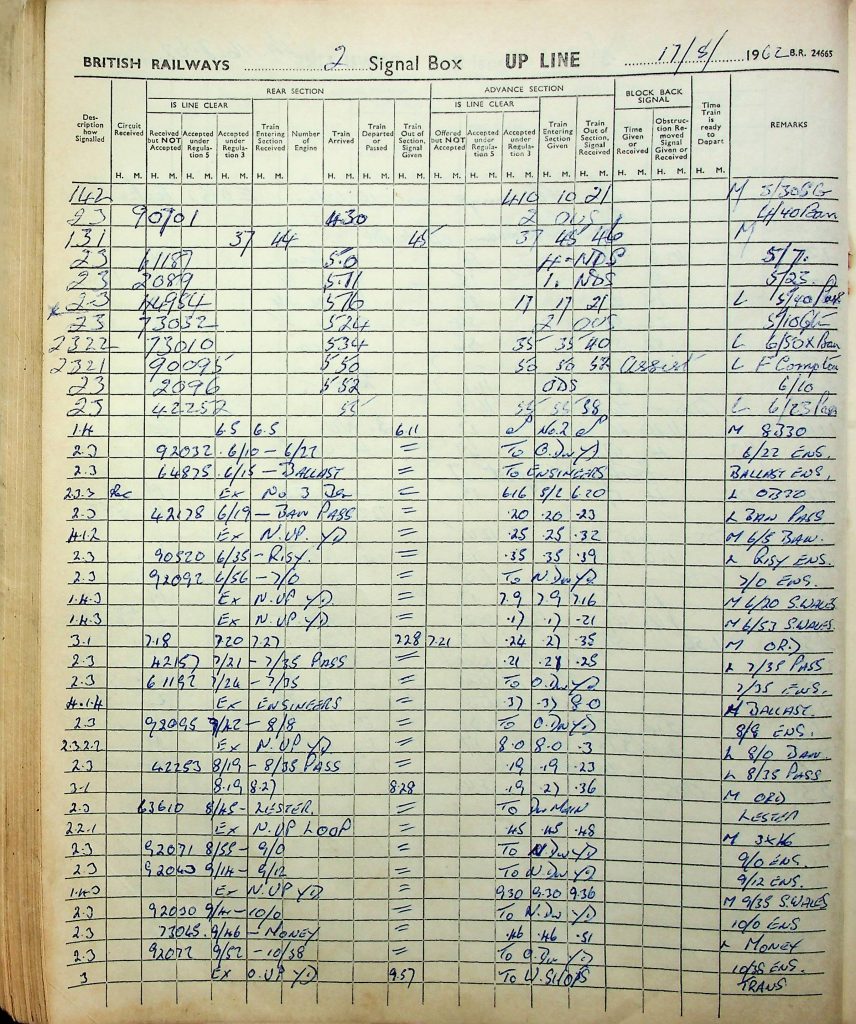 BRITISH RAILWAYS 2 Signal Box UP LINE 17/8/ 1962 B.R. 24665
REAR SECTION ADVANCE SECTION BLOCK BACK SIGNAL
IS LINE CLEAR IS LINE CLEAR
Description how Signalled Circuit Received Received but NOT Accepted Accepted under Regulation 5 Accepted under Regulation 3 Train Entering Section Received Number of Engine Train Arrived Train Departed or Passed Train Out of Section, Signal Given Offered but NOT Accepted Accepted under Regulation 5 Accepted under Regulation 3 Train Entering Section Given Train Out of Section, Signal Received Time Given or Received Obstruction Removed Signal Given or Received Time Train is ready to Depart REMARKS
H. M. H. M. H. M. H. M. H. M. H. M. H. M. H. M. H. M. H. M. H. M. H. M. H. M. H. M. H. M. H. M.
142 410 10 21 M
23 90701 430 2 4/40 Ban
131 37 44 45 37 45 46 M
23 61187 5.0 NDS 5/7.
23 2089 5.11 1. NDS 5/23.
23 44954 516 17 17 21 L 5/40 Pass
23 73032 524 2
2322 73010 534 35 35 40 L 6/50 Ban
2321 90095 550 50 50 57 Assist L F Compton
23 2096 552 ODS 6/10
23 42252 55 55 55 58 L 6/23 Pass
1.4 6.5 6.5 6.11 No.2 M 8330
2.3 92032 6/10 - 6/22 = To O.Dn YD 6/22 ENS.
2.3 64875 6/15 - BALLAST = To ENGINEERS BALLAST ENS.
2.3.3 Rec Ex No 3 = 616 6.20 L
2.3 42178 6/19 - BAN PASS = .20 .20 .23 L BAN PASS
4.1.2 Ex N.UP. YD = .25 .25 .32 M 6/5 BAN.
2.3 90520 6/35 - RISY. = .35 .35 .39 L RISY ENS.
2.3 92092 6/56 - 7/0 = To N.Dn YD 7/0 ENS.
1.4.3 Ex N.UP YD = 7.9 7.9 7.16 M 6/20 S.WALES
1.4.3 Ex N.UP YD = .17 .17 .21 M 6/53 S.WALES.
3.1 7.18 7.20 7.27 7.28 7.21 .24 .27 .35 M ORD
2.3 42157 7/21 - 7/35 PASS = .21 .21 .25 L 7/35 PASS
2.3 61192 7/24 - 7/35 = To O.Dn YD 7/35 ENS.
4.1.4 Ex ENGINEERS = .37 .37 8.0 M BALLAST.
2.3 92095 7/42 - 8/8 = To O.Dn YD 8/8 ENS.
2.3.2.2 Ex N.UP YD = 8.0 8.0 .3 L 8/0 BAN.
2.3 42253 8/19 - 8/35 PASS = .19 .19 .23 L 8/35 PASS
3-1 8.19 8.27 8.28 .19 .27 .36 M ORD
2.3 63610 8/45 - LESTER. = To Dn MAIN LESTER
2.2.1 Ex N.UP LOOP = .45 .45 .48 M 3X16
2.3 92071 8/55 - 9/0 = To N.Dn YD 9/0 ENS.
2.3 92043 9/14 - 9/12 = To N.Dn YD 9/12 ENS.
1.4.3 Ex N.UP YD = 9.30 9.30 9.36 M 9/35 S.WALES
2.3 92030 9/41 - 10/0 = To N.Dn YD 10/0 ENS
2.3 73045 9/46 - MONEY = .46 .46 .51 L MONEY
2.3 92077 9/52 - 10/38 = To O.Dn YD 10/38 ENS.
3 Ex O.UP YD 9.57 To W.SHOPS TRANS